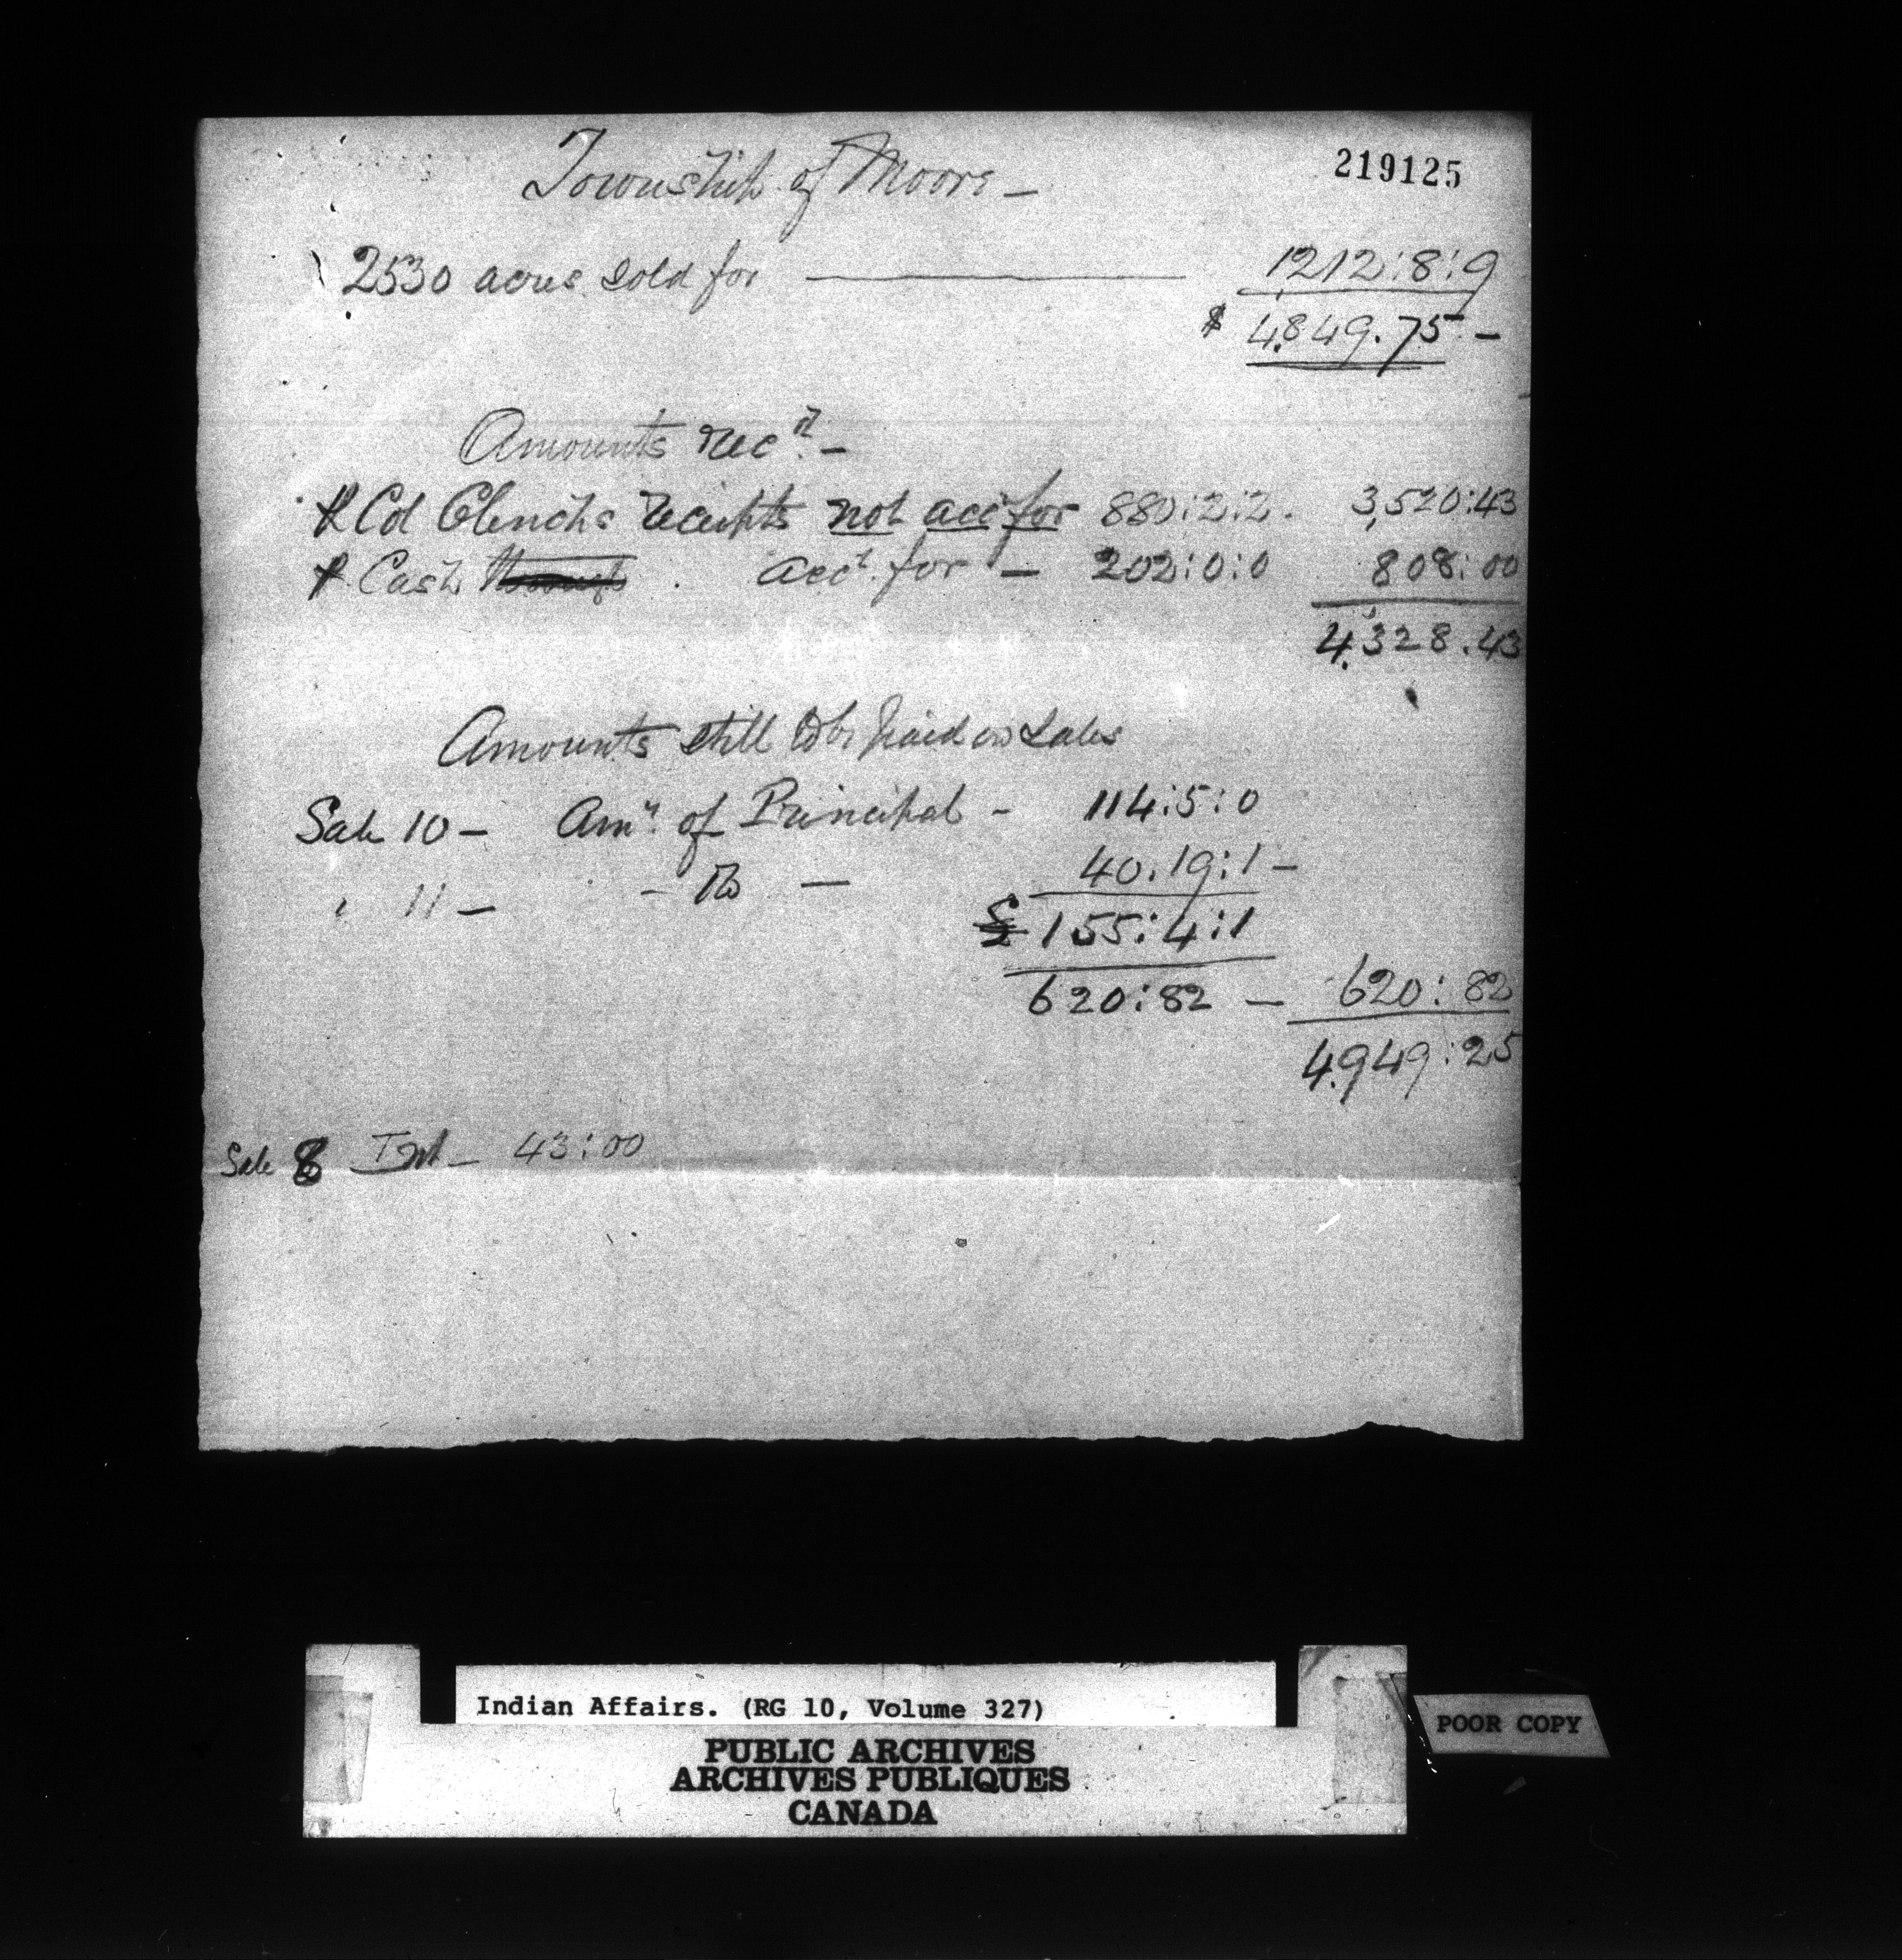 219125
Township of Moore -
2530 acres sold for — 1212:8:9
$ 4,849.75 -
Amounts rec'd. -
P Col Clench's receipts not acc't for 880:2:2. 3,520:43
P Cash through . acc't. for - 202:0:0 808:00
4,328.43
Amounts still to be paid on Sales
Sale 10 - Am't. of Principal - 114:5:0
" 11 - - Do - 40.19:1 -
£ 155:4:1
620:82 - 620:82
4,949:25
Sale 8 Int - 43:00
Indian Affairs. (RG 10, Volume 327)
PUBLIC ARCHIVES
ARCHIVES PUBLIQUES
CANADA
POOR COPY